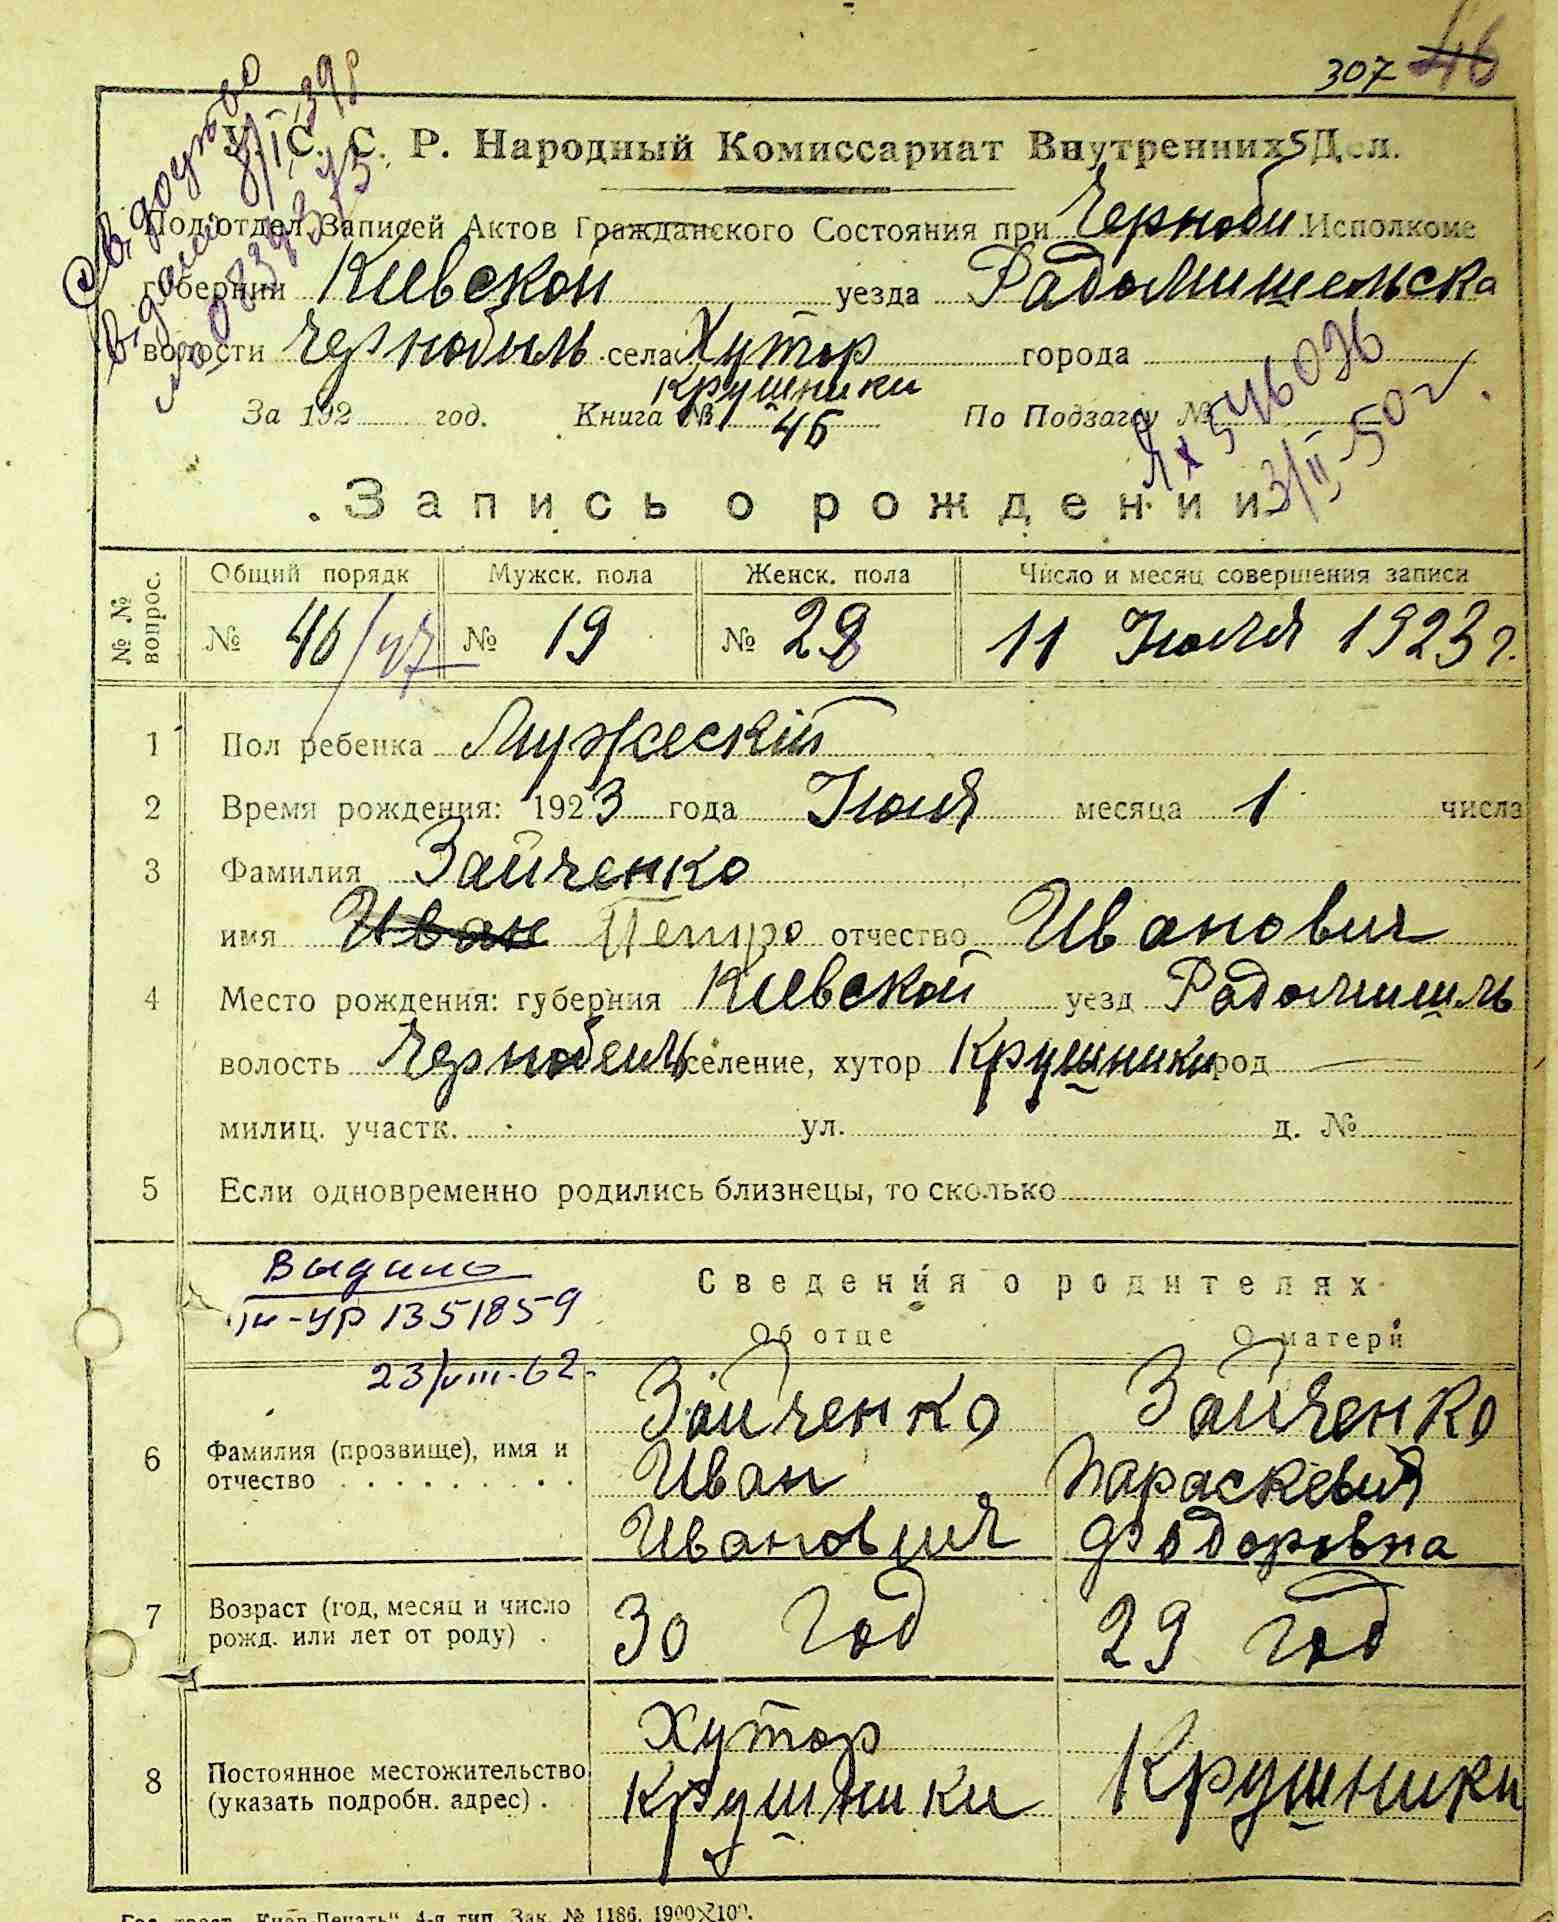 307 46
У. С. С. Р. Народный Комиссариат Внутренних Дел.
Подотдел Записей Актов Гражданского Состояния при Чернобы. Исполкоме
губернии Киевской уезда Радомишельска
волости Чернобыль села Хутор города
Крушники
За 192 год. Книга № 46 По Подзагсу №
Ях 546076
3/II-50 г.
Запись о рождении
№ № вопрос. Общий порядк Мужск. пола Женск. пола Число и месяц совершения записи
№ 46/47 № 19 № 28 11 Июля 1923 г.
1 Пол ребенка Мужеский
2 Время рождения: 1923 года Июля месяца 1 числа
3 Фамилия Зайченко
имя Иван Петро отчество Иванович
4 Место рождения: губерния Киевской уезд Радомишль
волость Чернобель селение, хутор Крушники род
милиц. участк. ул. д. №
5 Если одновременно родились близнецы, то сколько
Выдано
1351859
23/VIII-62.
Сведения о родителях
Об отце О матери
6 Фамилия (прозвище), имя и отчество
Зайченко Зайченко
Иван Параскевия
Иванович Фодоровна
7 Возраст (год, месяц и число рожд. или лет от роду) .
30 год 29 год
8 Постоянное местожительство (указать подробн. адрес) .
Хутор
Крушники Крушники
Гос. трест „Киев-Печать“ 4-я тип. Зак. № 1186. 1900×100.